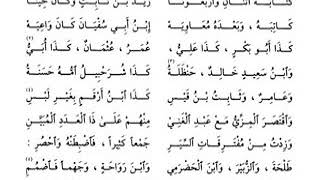 كتابه اثنان وأربعونا زيد بن ثابت وكان حينا
كاتبه ، وبعده معاوية إبن أبي سفيان كان واعية
كذا أبو بكر ، كذا علي ، عمر ، عثمان ، كذا أبي
وابن سعيد خالد ، حنظلة كذا شرحبيل أمه حسنة
وعامر ، وثابت بن قيس كذا ابن أرقم بغير لبس
واقتصر المزي مع عبد الغني منهم على ذا العدد المبين
وزدت من مفترقات السير جمعا كثيرا ، فاضبطنه واحصر :
طلحة ، والزبير ، وابن الحضرمي وابن رواحة ، وجهما فاضمم